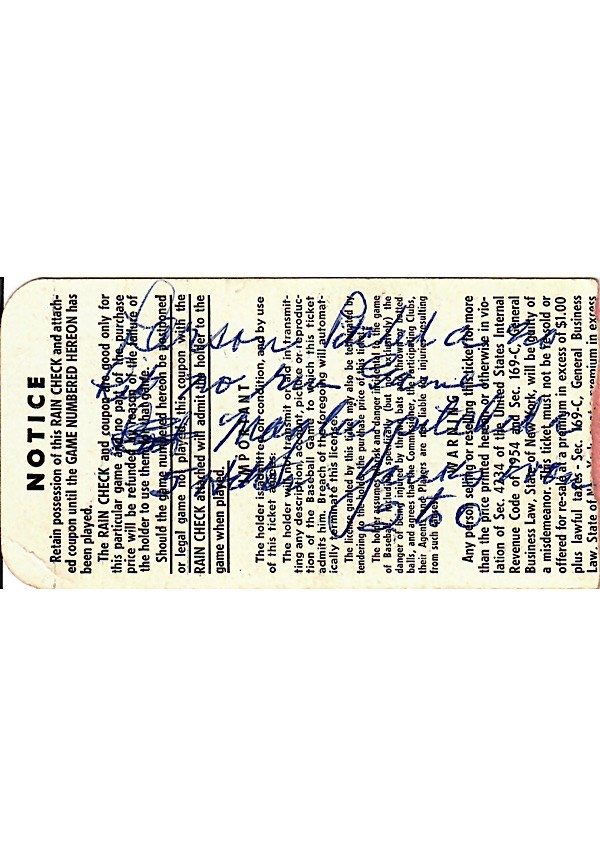 NOTICE
Retain possession of this RAIN CHECK and attach-
ed coupon until the GAME NUMBERED HEREON has
been played.
The RAIN CHECK and coupon are good only for
this particular game and no part of the purchase
price will be refunded by reason of the failure of
the holder to use them at that game.
Should the game numbered hereon be postponed
or legal game not played, this coupon with the
RAIN CHECK attached will admit the holder to the
game when played.
IMPORTANT
The holder is admitted on condition, and by use
of this ticket agrees:
The holder will not transmit or aid in transmit-
ting any description, account, picture or reproduc-
tion of the Baseball Game to which this ticket
admits him. Breach of the foregoing will automat-
ically terminate this license.
The license granted by this ticket may also be terminated by
tendering to the holder the purchase price of this ticket.
The holder assumes all risk and danger incidental to the game
of Baseball including specifically (but not exclusively) the
danger of being injured by thrown bats and thrown or batted
balls, and agrees that the Commissioner, the Participating Clubs,
their Agents and Players are not liable for injuries resulting
from such causes.
WARNING
Any person selling or reselling this ticket for more
than the price printed hereon or otherwise in vio-
lation of Sec. 4234 of the United States Internal
Revenue Code of 1954 and Sec. 169-C, General
Business Law, State of New York, will be guilty of
a misdemeanor. This ticket must not be resold or
offered for re-sale at a premium in excess of $1.00
plus lawful taxes - Sec. 169-C, General Business
Law, State of New York
premium in excess
Larson pitched a no
hit no run game
Maglie pitched
Yanks won
2 to 0